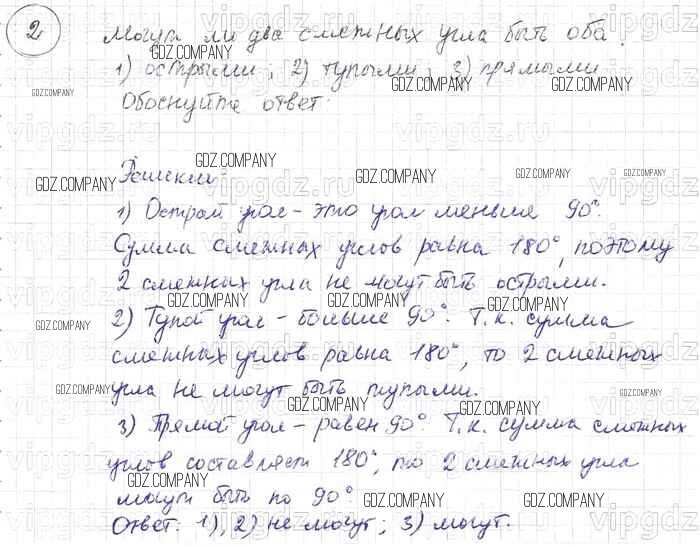 2
Могут ли два смежных угла быть оба:
1) острыми; 2) тупыми; 3) прямыми
Обоснуйте ответ.
Решение:
1) Острый угол - это угол меньше 90°.
Сумма смежных углов равна 180°, поэтому
2 смежных угла не могут быть острыми.
2) Тупой угол - больше 90°. Т.к. сумма
смежных углов равна 180°, то 2 смежных
угла не могут быть тупыми.
3) Прямой угол - равен 90°. Т.к. сумма смежных
углов составляет 180°, то 2 смежных угла
могут быть по 90°
Ответ: 1), 2) не могут; 3) могут.
GDZ.COMPANY
vipgdz.ru